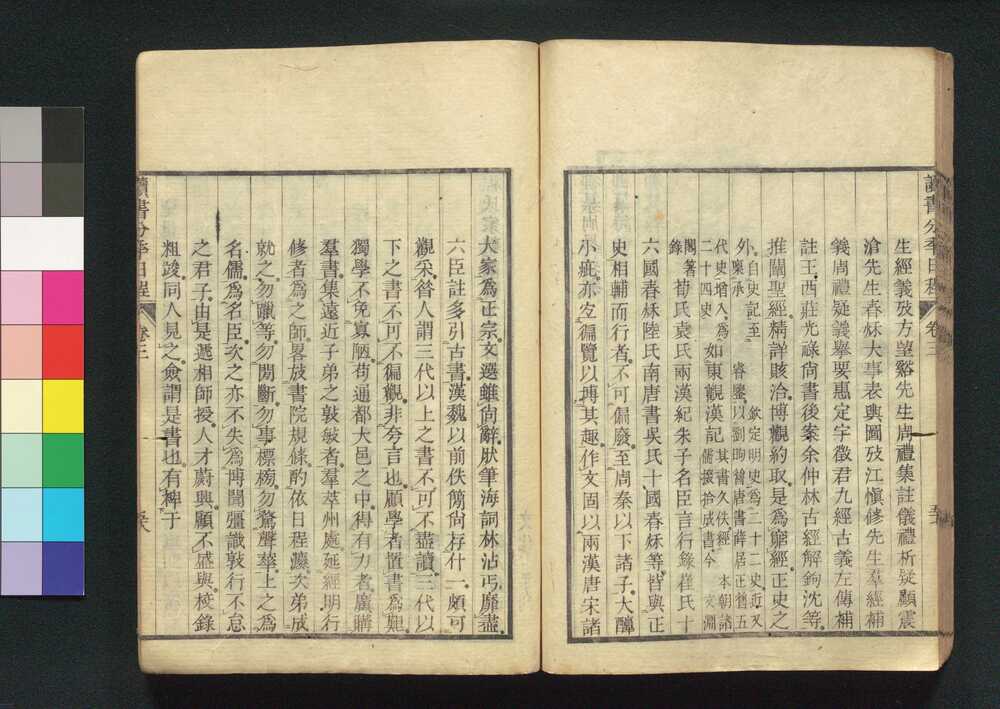 讀書分年日程 卷三
生經義攷方望谿先生周禮集註儀禮析疑顧震
滄先生春秋大事表輿圖攷江愼修先生羣經補
義周禮疑義舉要惠定宇徵君九經古義左傳補
註王西莊光祿尙書後案余仲林古經解鉤沈等
推闡聖經精詳賅洽博觀約取是爲窮經正史之
外
小自史記至
欽定明史爲二十二史近又
稾承
睿鑒以劉昫舊唐書薛居正舊五
代史增入爲
本朝諸
二十四史
如東觀漢記
其書久佚經
儒攈拾成書今
文淵
閣著
錄
荀氏袁氏兩漢紀朱子名臣言行錄崔氏十
六國春秋陸氏南唐書吳氏十國春秋等皆與正
史相輔而行者不可偏廢至周秦以下諸子大醇
小疵亦宜徧覽以博其趣作文固以兩漢唐宋諸
大家爲正宗文選雖尙辭肰筆海詞林沾丐靡盡
六臣註多引古書漢魏以前佚簡尙存什一頗可
觀采昝人謂三代以上之書不可不盡讀三代以
下之書不可不徧觀非夸言也顧學者置書爲難
獨學不免寡陋苟通都大邑之中得有力者廣購
羣書集遠近子弟之敦敏者羣萃州處延經明行
修者爲之師畧放書院規條酌依日程灋次弟成
就之勿躐等勿閒斷勿事標榜勿驚聲華上之爲
名儒爲名臣次之亦不失爲博聞彊識敦行不怠
之君子由是遞相師授人才蔚興顧不盛與校錄
粗竣同人見之僉謂是書也有裨于
讀書分年日程 卷三